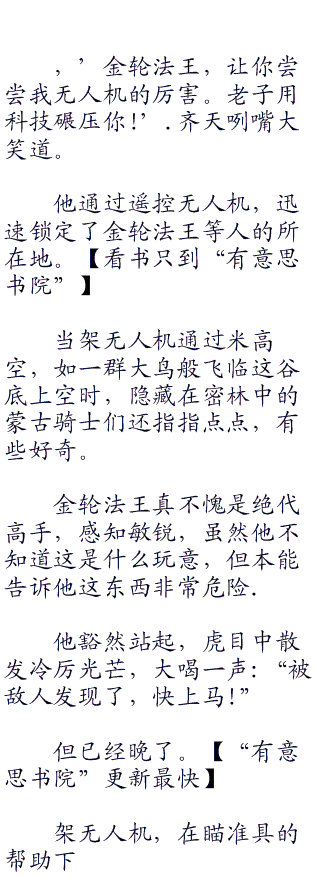 ，’金轮法王，让你尝
尝我无人机的厉害。老子用
科技碾压你!’.齐天咧嘴大
笑道。
他通过遥控无人机，迅
速锁定了金轮法王等人的所
在地。【看书只到“有意思
书院”】
当架无人机通过米高
空，如一群大鸟般飞临这谷
底上空时，隐藏在密林中的
蒙古骑士们还指指点点，有
些好奇。
金轮法王真不愧是绝代
高手，感知敏锐，虽然他不
知道这是什么玩意，但本能
告诉他这东西非常危险.
他豁然站起，虎目中散
发冷厉光芒，大喝一声:“被
敌人发现了，快上马!”
但已经晚了。【“有意
思书院”更新最快】
架无人机，在瞄准具的
帮助下